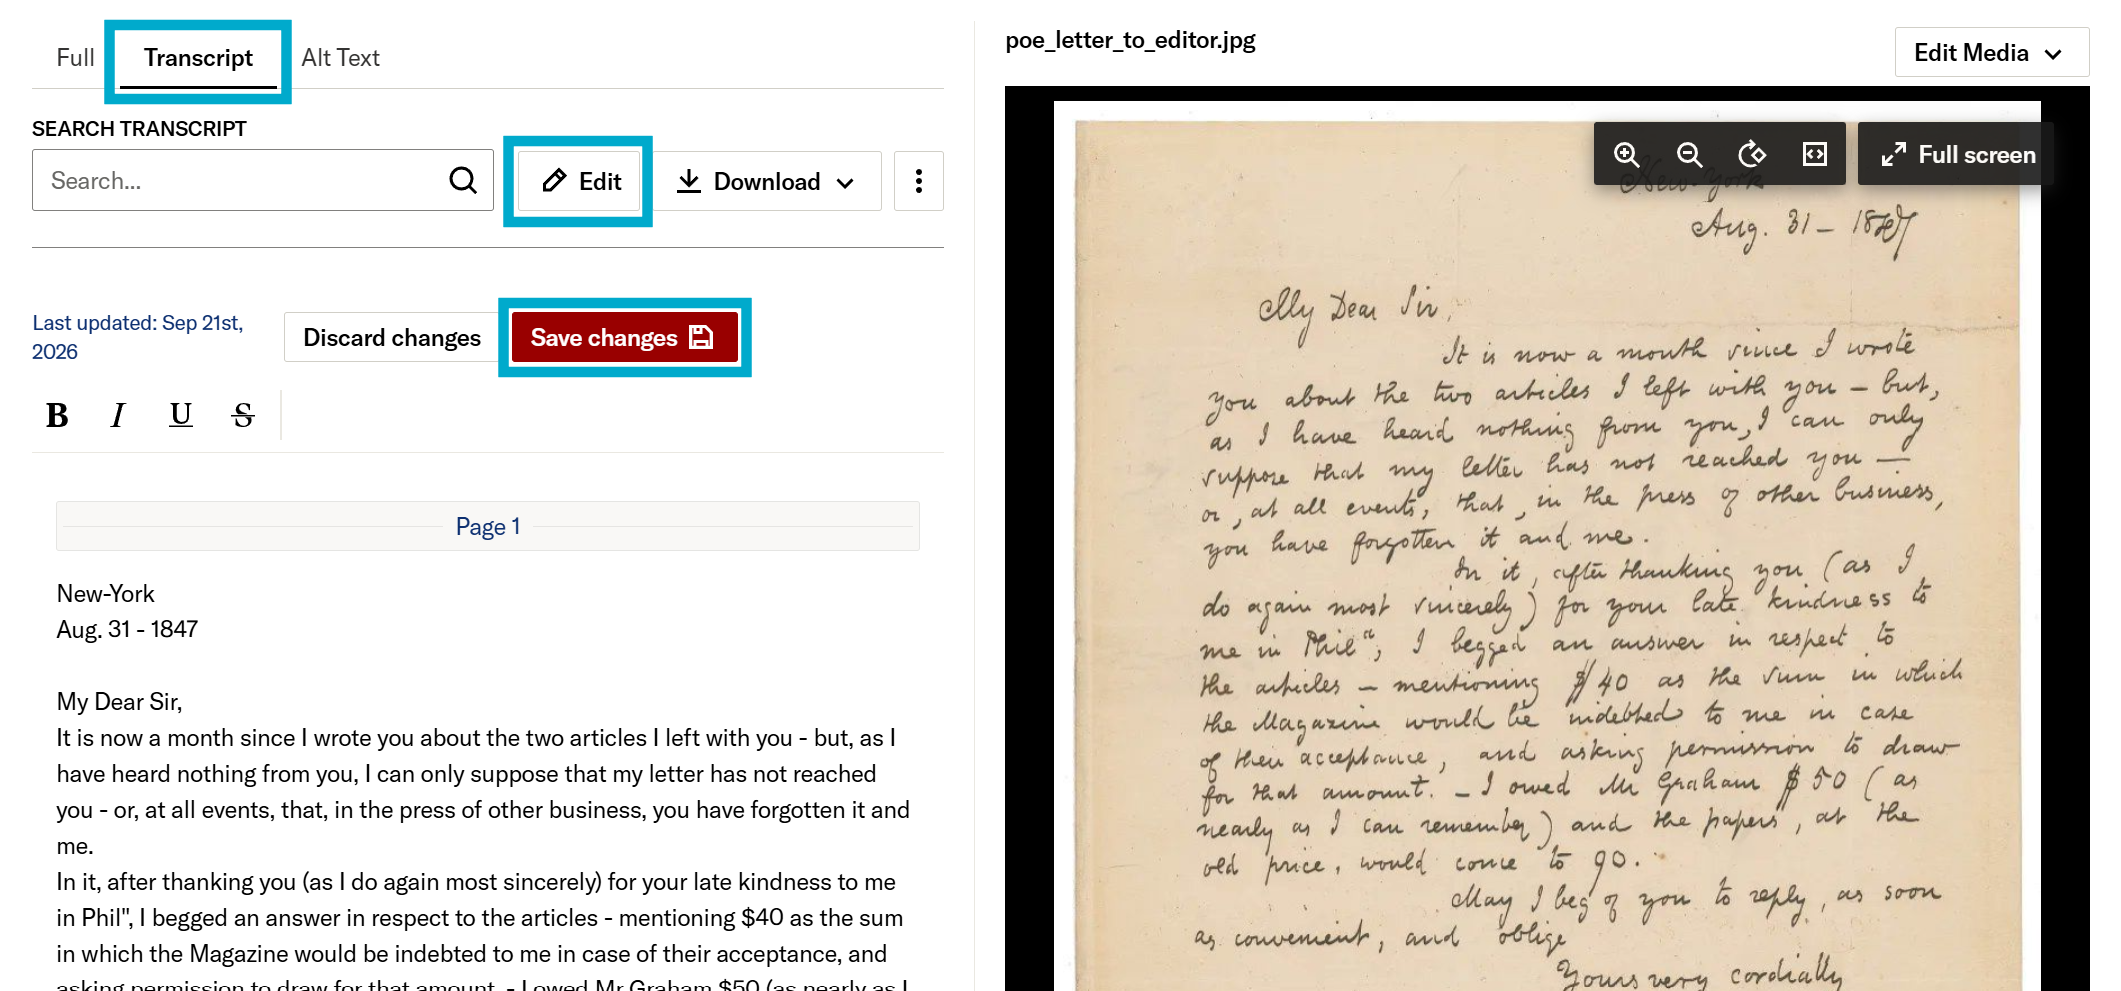 Full Transcript Alt Text
SEARCH TRANSCRIPT
Search...
Edit
Download
Last updated: Sep 21st,
2026
Discard changes
Save changes
B I U S
Page 1
New-York
Aug. 31 - 1847
My Dear Sir,
It is now a month since I wrote you about the two articles I left with you - but, as I
have heard nothing from you, I can only suppose that my letter has not reached
you - or, at all events, that, in the press of other business, you have forgotten it and
me.
In it, after thanking you (as I do again most sincerely) for your late kindness to me
in Phil", I begged an answer in respect to the articles - mentioning $40 as the sum
in which the Magazine would be indebted to me in case of their acceptance, and
asking permission to draw for that amount. - I owed Mr Graham $50 (as nearly as I
poe_letter_to_editor.jpg
Edit Media
Full screen
New-York
Aug. 31 – 1847
My Dear Sir,
It is now a month since I wrote
you about the two articles I left with you – but,
as I have heard nothing from you, I can only
suppose that my letter has not reached you —
or, at all events, that, in the press of other business,
you have forgotten it and me.
In it, after thanking you (as I
do again most sincerely) for your late kindness to
me in Phil", I begged an answer in respect to
the articles – mentioning $40 as the sum in which
the Magazine would be indebted to me in case
of their acceptance, and asking permission to draw
for that amount. – I owed Mr Graham $50 (as
nearly as I can remember) and the papers, at the
old price, would come to 90.
May I beg of you to reply, as soon
as convenient, and oblige
Yours very cordially